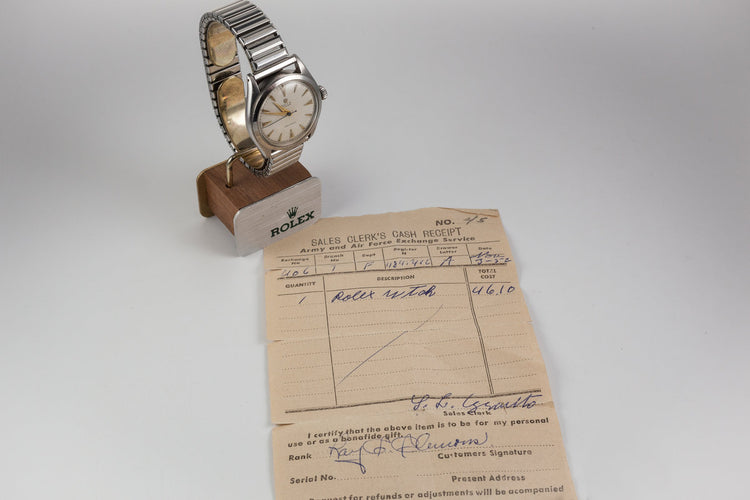 ROLEX
NO. 45
SALES CLERK'S CASH RECEIPT
Army and Air Force Exchange Service
Exchange No Branch No Dept Register N Drawer Letter Date
406 1 P A
QUANTITY DESCRIPTION TOTAL COST
1 Rolex Wtch 46.10
Sales Clerk
I certify that the above item is to be for my personal
use or as a bonafide gift.
Rank Ray Clemons
Customers Signature
Serial No. Present Address
Request for refunds or adjustments will be acompanied